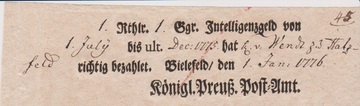 45
1 Rthlr. 1 Ggr. Intelligenzgeld von
1. July bis ult. Dec: 1775. hat h. v. Wendt z. 3 Hatz
feld richtig bezahlet. Bielefeld / den 1. Jan. 1776.
Königl. Preuß. Post-Amt.